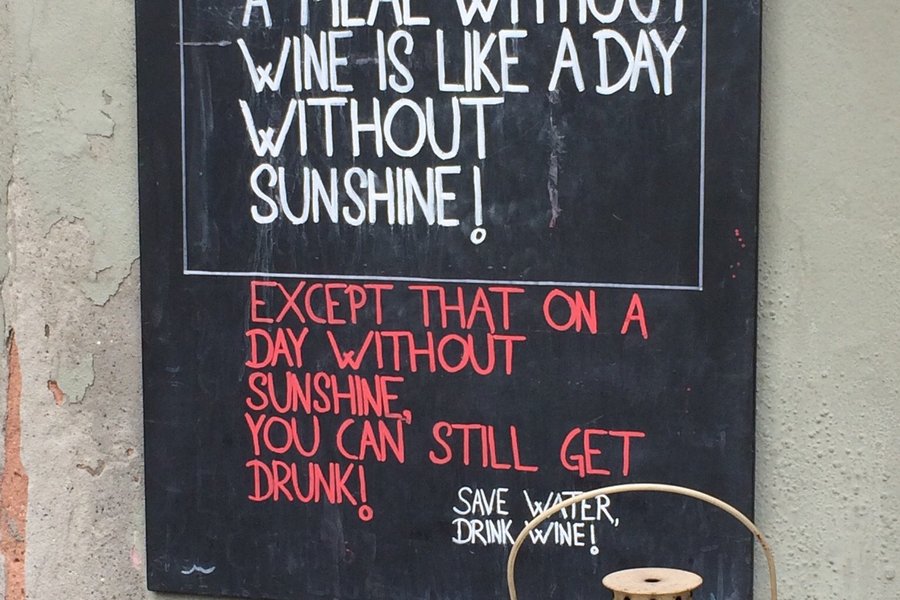 A MEAL WITHOUT
WINE IS LIKE A DAY
WITHOUT
SUNSHINE!
EXCEPT THAT ON A
DAY WITHOUT
SUNSHINE,
YOU CAN STILL GET
DRUNK!
SAVE WATER,
DRINK WINE!